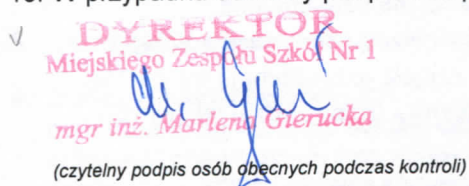 DYREKTOR
Miejskiego Zespołu Szkół Nr 1
mgr inż. Marlena Gierucka
(czytelny podpis osób obecnych podczas kontroli)